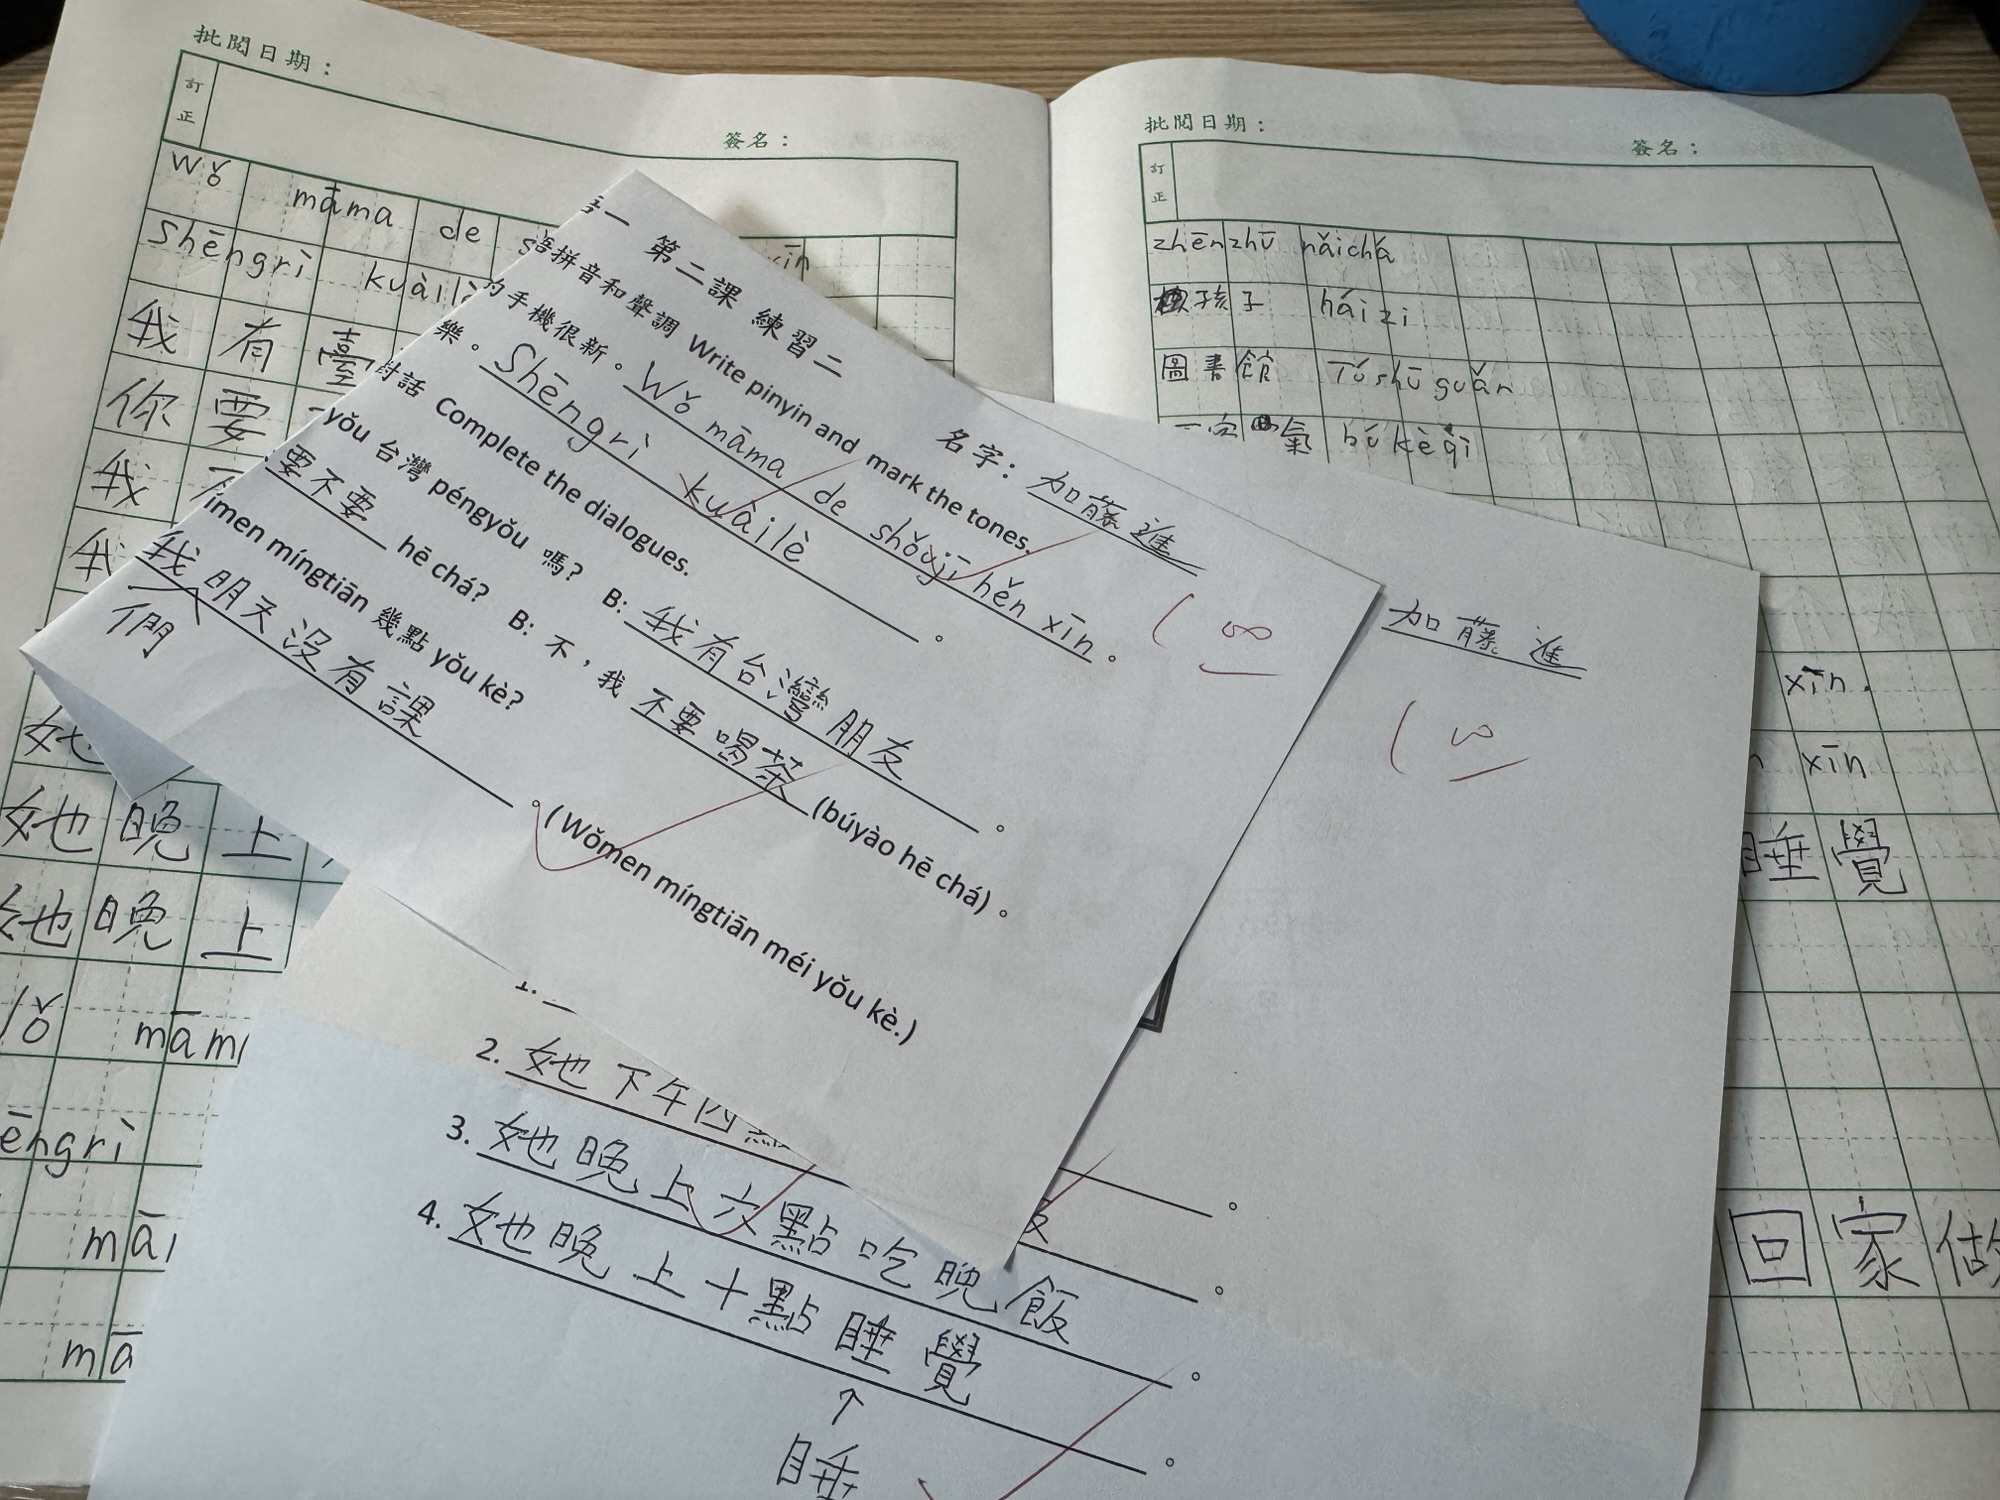 批閱日期：
訂正
簽名：
wǒ māma de
shēngrì kuàilè
我有臺
你要
我
我
她
她晚上
她晚上
māma
ēngrì
mā
mā
批閱日期：
簽名：
訂正
zhēnzhū nǎichá
孩子 háizi
圖書館 Túshūguǎn
氣 búkèqì
xīn.
xīn
睡覺
回家做
第二課 練習二
名字：加藤進
語拼音和聲調 Write pinyin and mark the tones.
的手機很新。Wǒ māma de shǒujī hěn xīn。
樂。Shēngrì kuàilè。
對話 Complete the dialogues.
yǒu 台灣 péngyǒu 嗎？ B: 我有台灣朋友。
要不要 hē chá? B: 不，我不要喝茶 (búyào hē chá)。
imen míngtiān 幾點 yǒu kè?
我們明天沒有課。(Wǒmen míngtiān méi yǒu kè.)
100
加藤進
100
1.
2. 她下午四點
3. 她晚上六點吃晚飯。
4. 她晚上十點睡覺。
睡